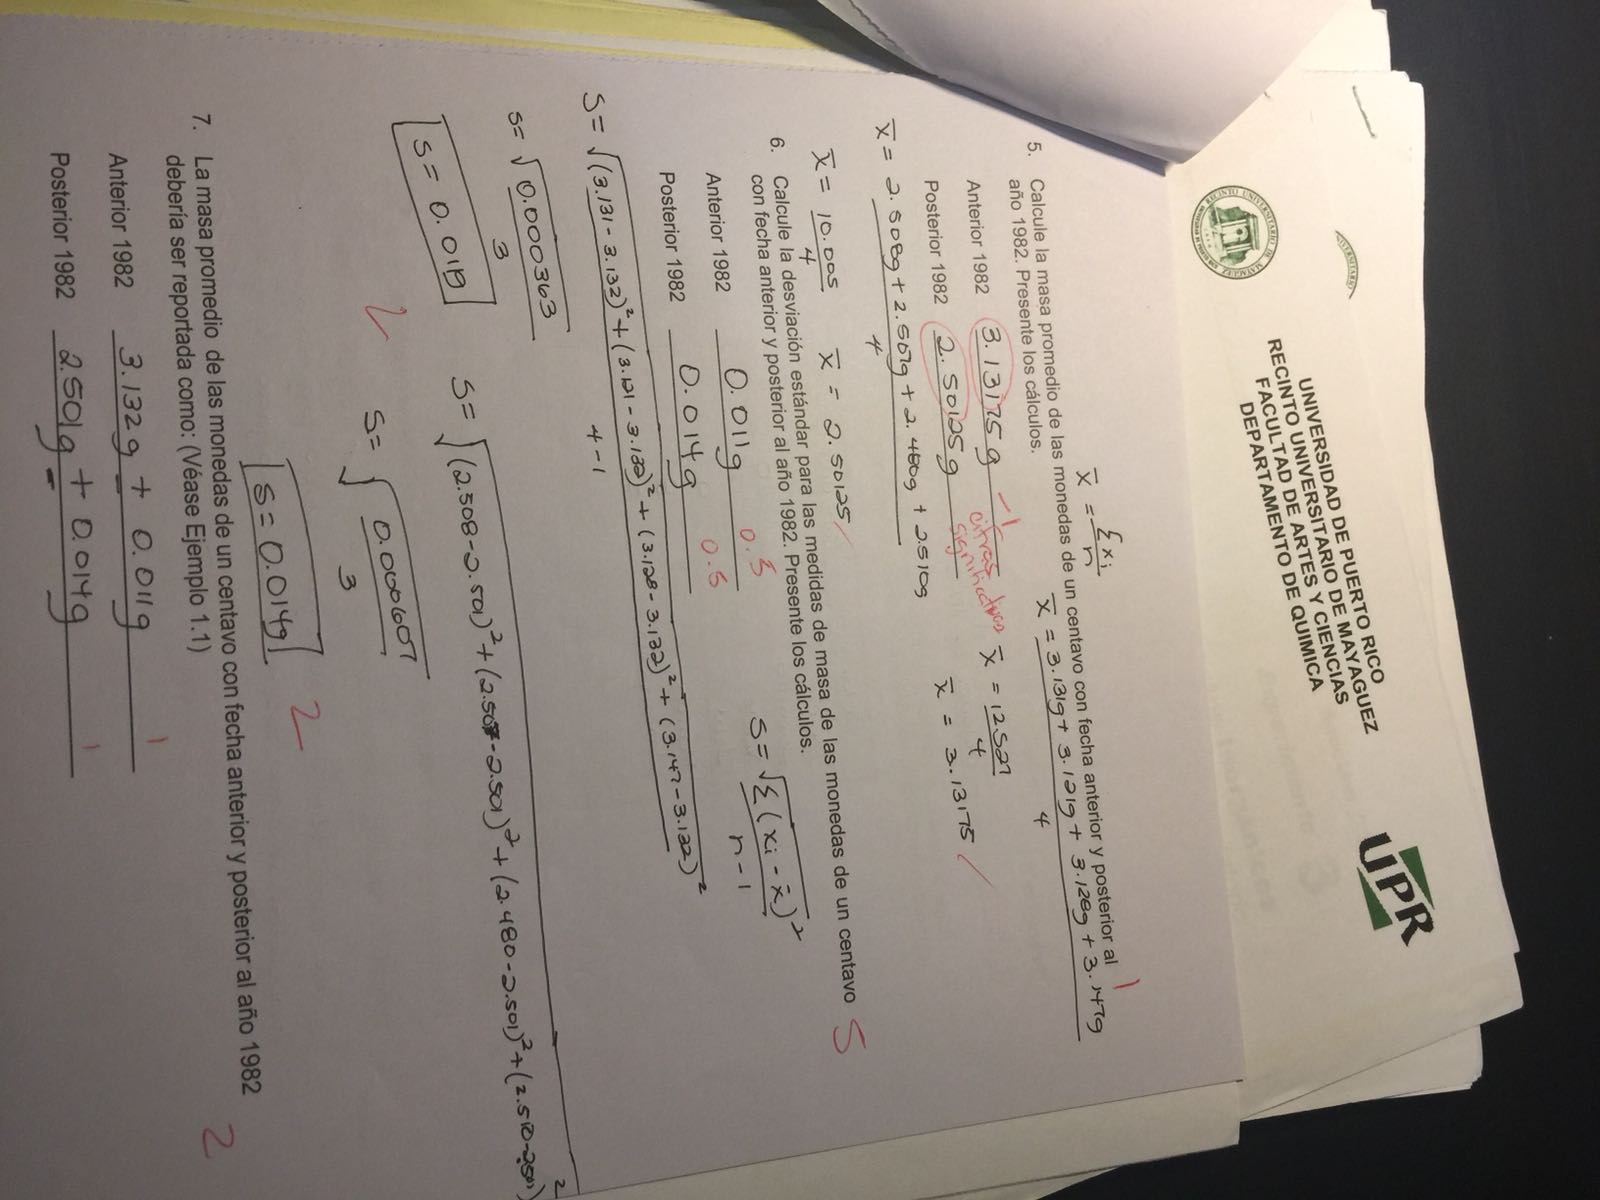 UNIVERSITARIO
RECINTO UNIVERSITARIO DE MAYAGUEZ
UNIVERSIDAD DE PUERTO RICO
RECINTO UNIVERSITARIO DE MAYAGUEZ
FACULTAD DE ARTES Y CIENCIAS
DEPARTAMENTO DE QUIMICA
UPR
x̄ = Σxi / n
5. Calcule la masa promedio de las monedas de un centavo con fecha anterior y posterior al 1
año 1982. Presente los cálculos.
x̄ = 3.131g + 3.121g + 3.128g + 3.147g / 4
Anterior 1982 3.13175 g -1 cifras significativas x̄ = 12.527 / 4
Posterior 1982 2.50125g x̄ = 3.13175
x̄ = 2.508g + 2.507g + 2.480g + 2.510g / 4
x̄ = 10.005 / 4 x̄ = 2.50125
6. Calcule la desviación estándar para las medidas de masa de las monedas de un centavo 5
con fecha anterior y posterior al año 1982. Presente los cálculos.
Anterior 1982 0.011g 0.5 s = √Σ(xi - x̄)² / n-1
Posterior 1982 0.014g 0.5
S = √(3.131 - 3.132)² + (3.121 - 3.132)² + (3.128 - 3.132)² + (3.147 - 3.132)² / 4-1
s = √0.000363 / 3
S = √(2.508-2.501)² + (2.507-2.501)² + (2.480-2.501)² + (2.510-2.501)²
S = 0.011g 2
S = √0.000607 / 3
S = 0.014g 2
7. La masa promedio de las monedas de un centavo con fecha anterior y posterior al año 1982
debería ser reportada como: (Véase Ejemplo 1.1) 2
Anterior 1982 3.132g ± 0.011g 1
Posterior 1982 2.501g ± 0.014g 1